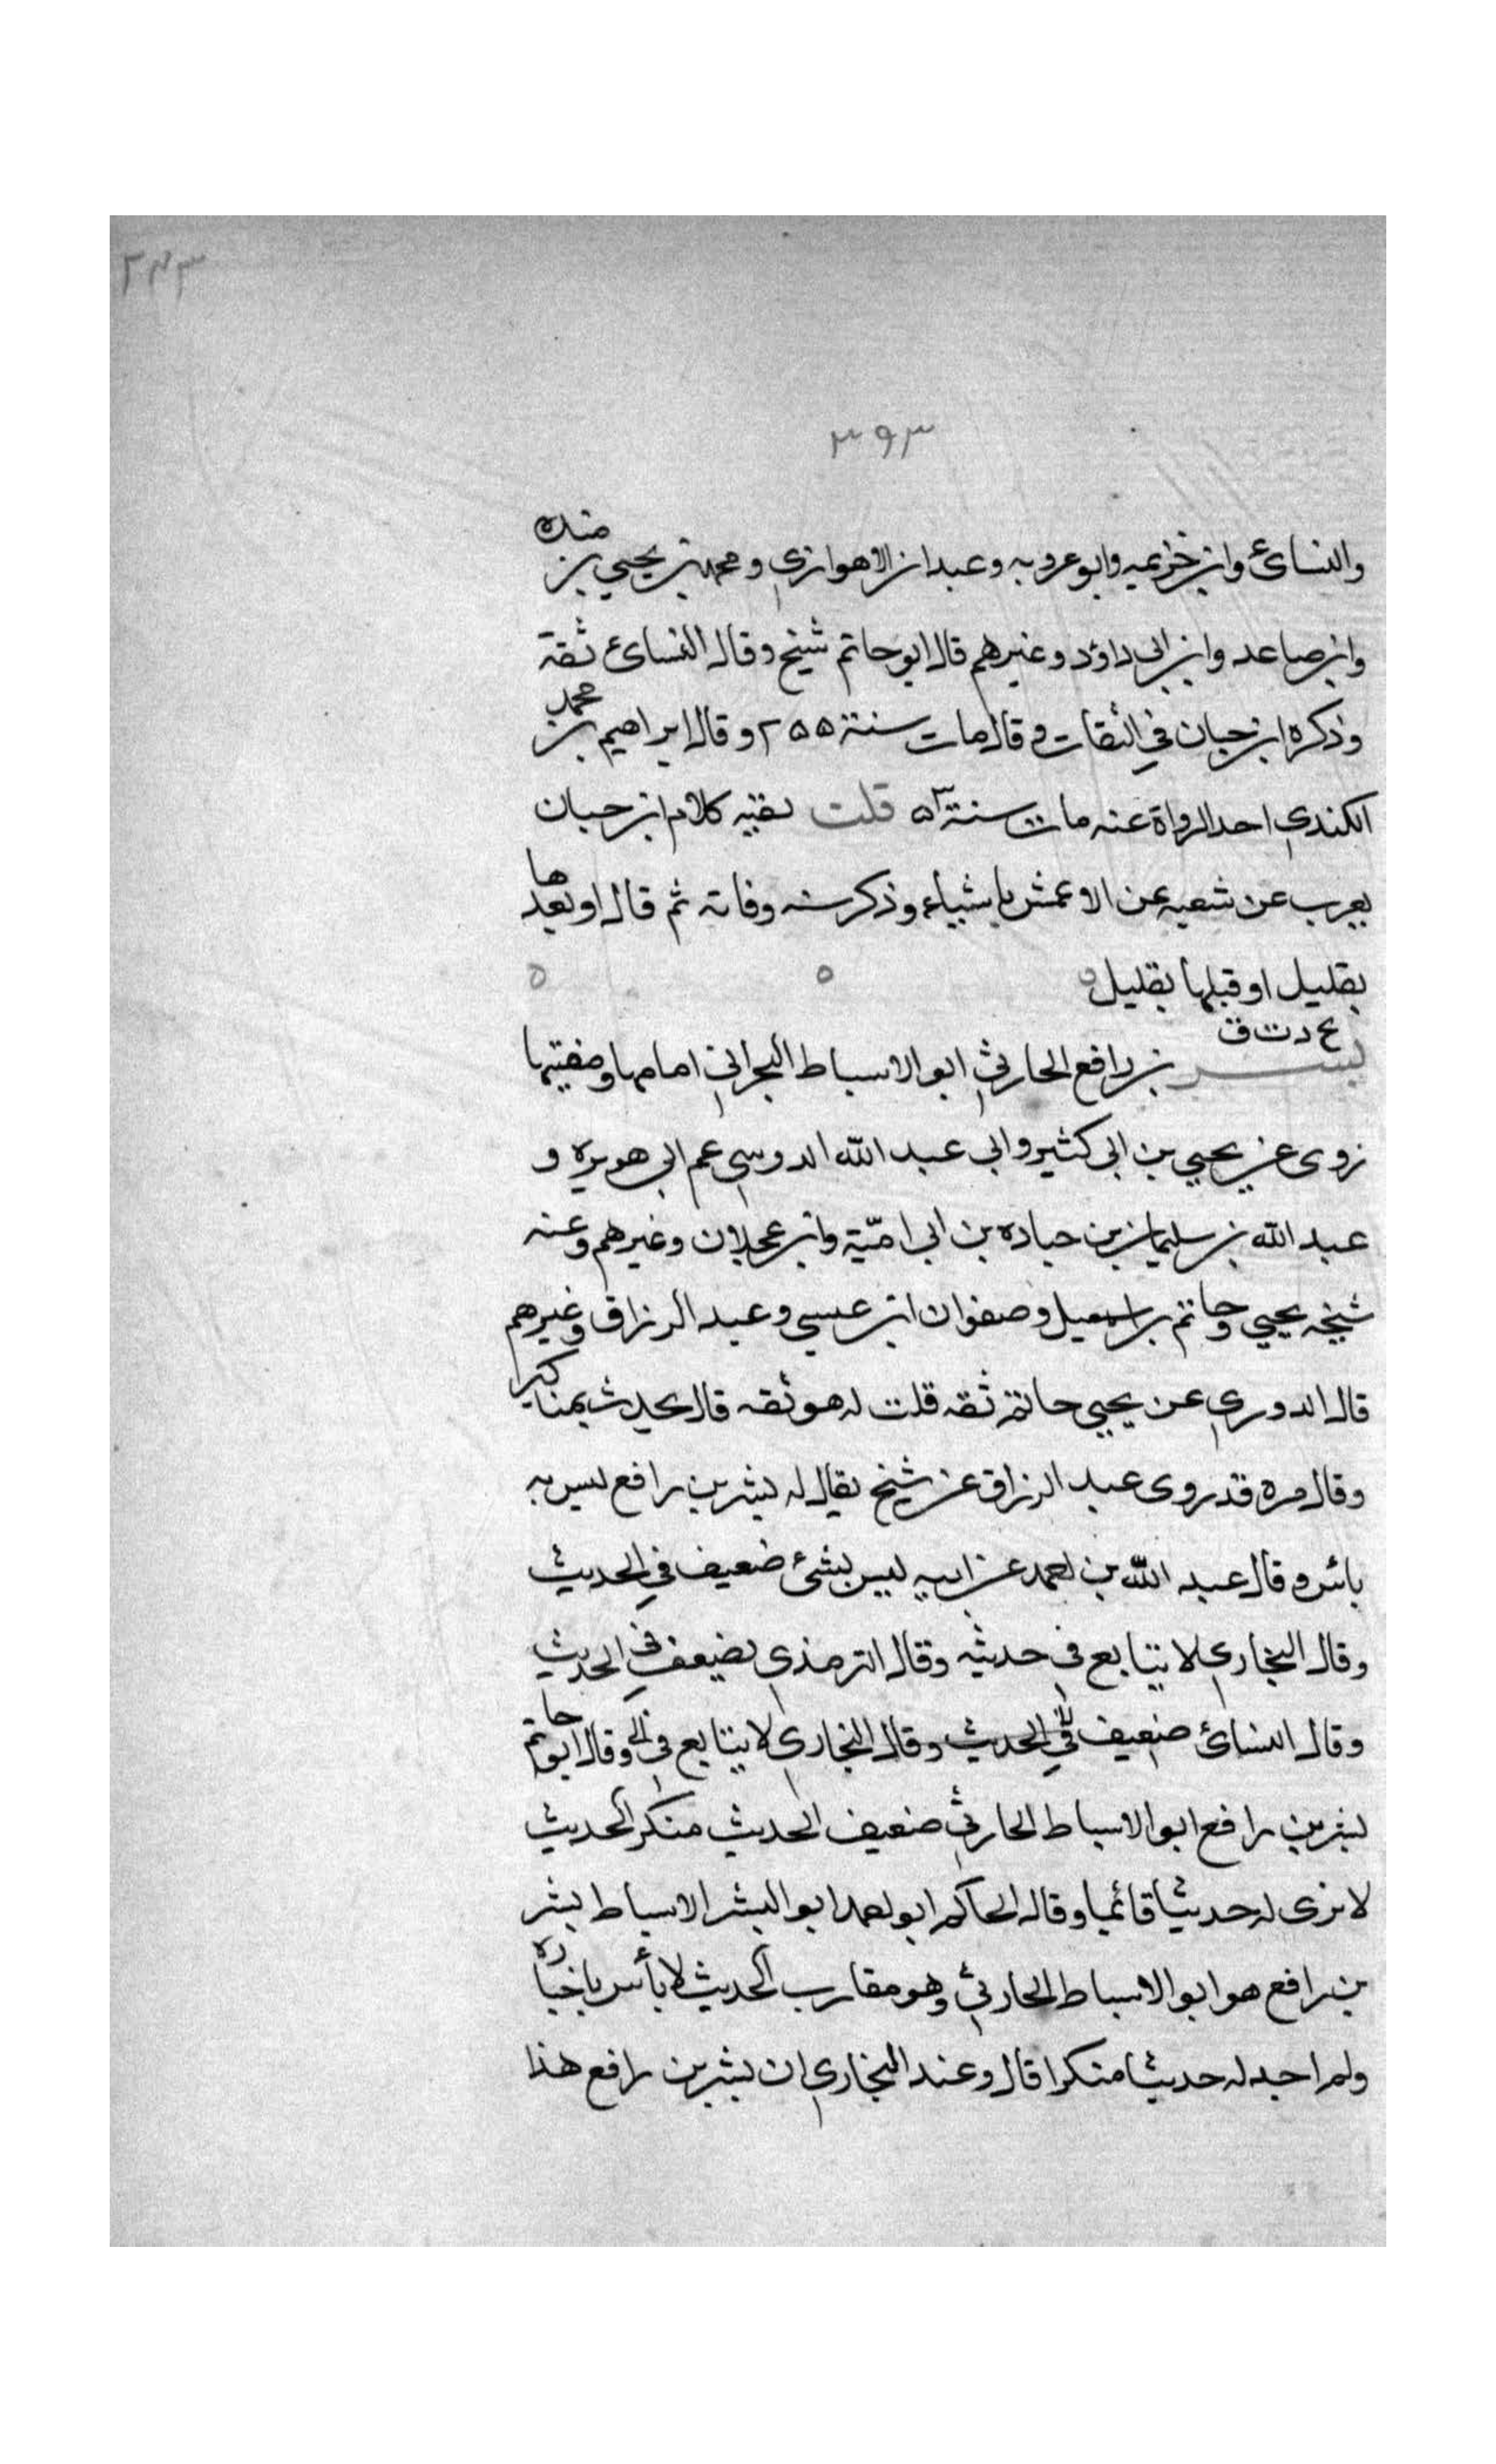 ٢٤٣
٣٩٣
والنسائ وابن خزيمه وابو عروبه وعبدان الاهوازي ومحمد بن يحيي بن منده
وابن صاعد وابن ابى داؤد وغيرهم قال ابو حاتم شيخ وقال النسائ ثقة
وذكره ابن حبان في الثقات وقال مات سنة ٢٥٥ وقال ابراهيم بن محمد
الكندي احد الرواة عنه مات سنة ٥٣ قلت بقيه كلام ابن حبان
يعرب عن شعبه عن الاعمش باشياء وذكر سنه وفاته ثم قال او بعدها
بقليل او قبلها بقليل ه ه ه
بشر بخ د ت ق بن رافع الحارثي ابو الاسباط البحراني امامها ومفتيها
روى عن يحيي بن ابى كثير وابي عبد الله الدوسي عم ابى هريره و
عبد الله بن سليمان بن جناده بن ابي امّية وابن عجلان وغيرهم وعنه
شيخه يحيي وحاتم بن اسمعيل وصفوان ابن عيسي وعبد الرزاق وغيرهم
قال الدوري عن يحيي حاتم ثقه قلت له هو ثقه قال يحدث بمناكير
وقال مره قد روى عبد الرزاق عن شيخ يقال له بشر بن رافع ليس به
بائس وقال عبد الله بن احمد عن ابيه ليس بشئ ضعيف في الحديث
وقال البخاري لا يتابع في حديثه وقال الترمذي يضعف في الحديث
وقال النسائ ضعيف في الحديث وقال البخاري لا يتابع في وقال ابو حاتم
بشر بن رافع ابو الاسباط الحارثي ضعيف الحديث منكر الحديث
لا نرى له حديثا قائما وقال الحاكم ابو احمد ابو البشر الاسباط بشر
بن رافع هو ابو الاسباط الحارثي وهو مقارب الحديث لا بأس باخباره
ولم اجد له حديثا منكرا قال وعند البخاري ان بشر بن رافع هذا